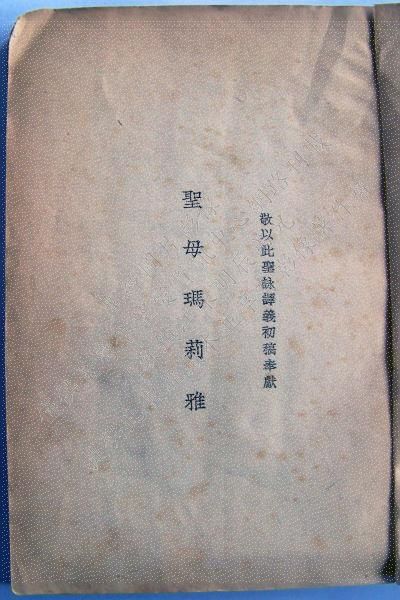 敬以此聖詠譯義初稿奉獻
聖母瑪莉雅